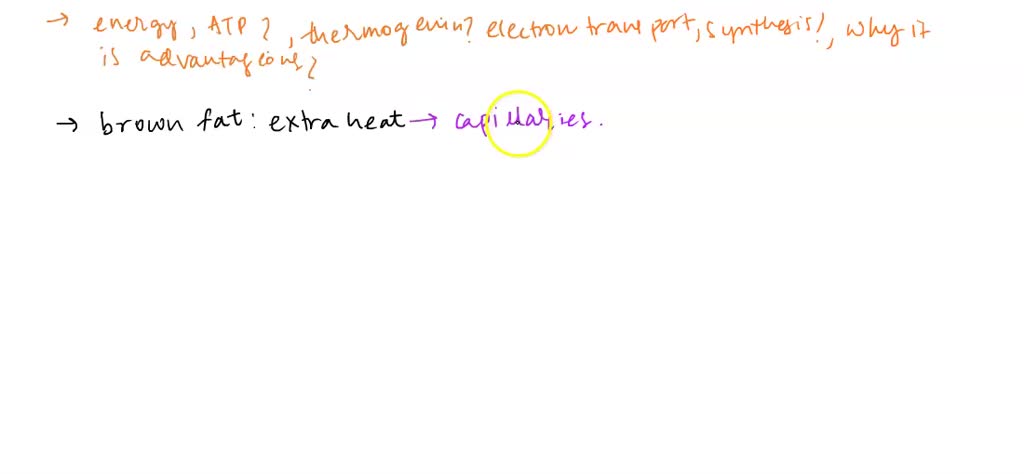 → energy, ATP?, thermogenin? electron transport, synthesis!, why it
is advantageous?
→ brown fat: extra heat → capillaries.